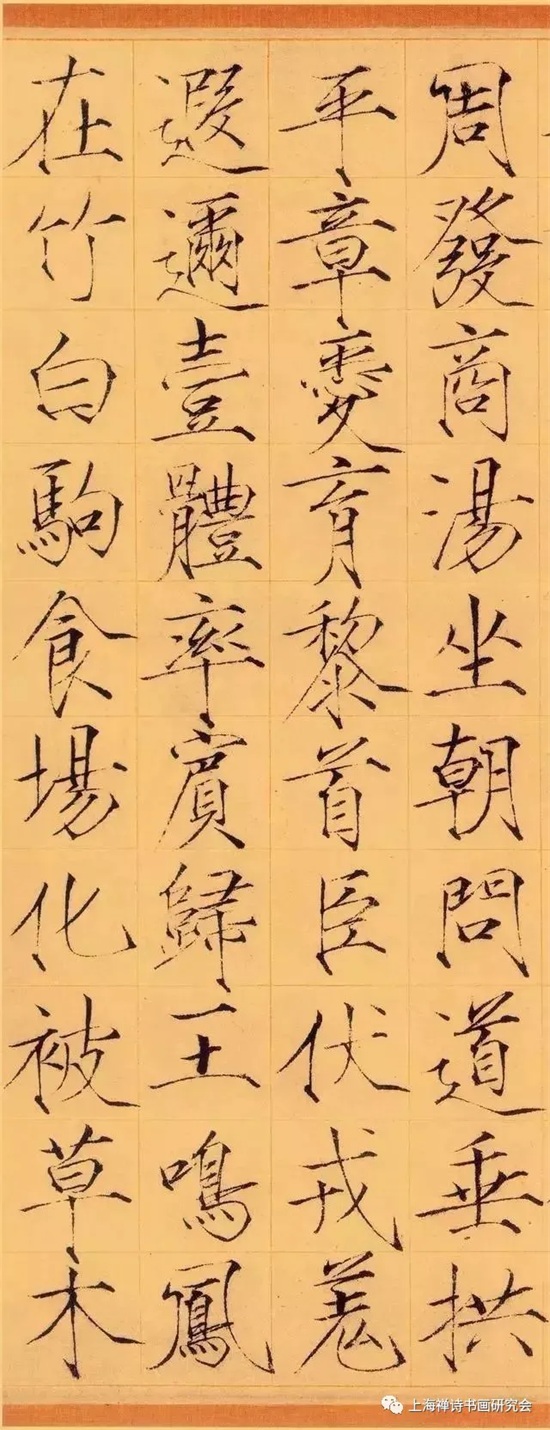 周發商湯坐朝問道垂拱
平章愛育黎首臣伏戎羌
遐邇壹體率賓歸王鳴鳳
在竹白駒食場化被草木
上海禅诗书画研究会